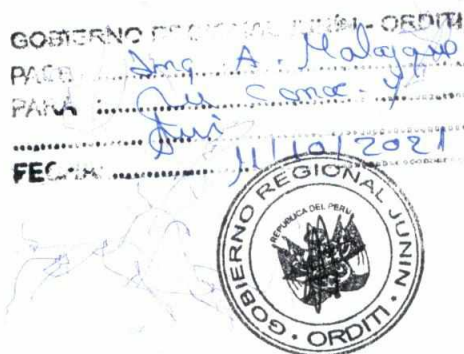 GOBIERNO REGIONAL JUNÍN - ORDITI
PASE : Ing A. Malasque
PARA : Su Conoc. y
FECHA: 11/10/2021
GOBIERNO REGIONAL JUNIN
REPUBLICA DEL PERU
ORDITI